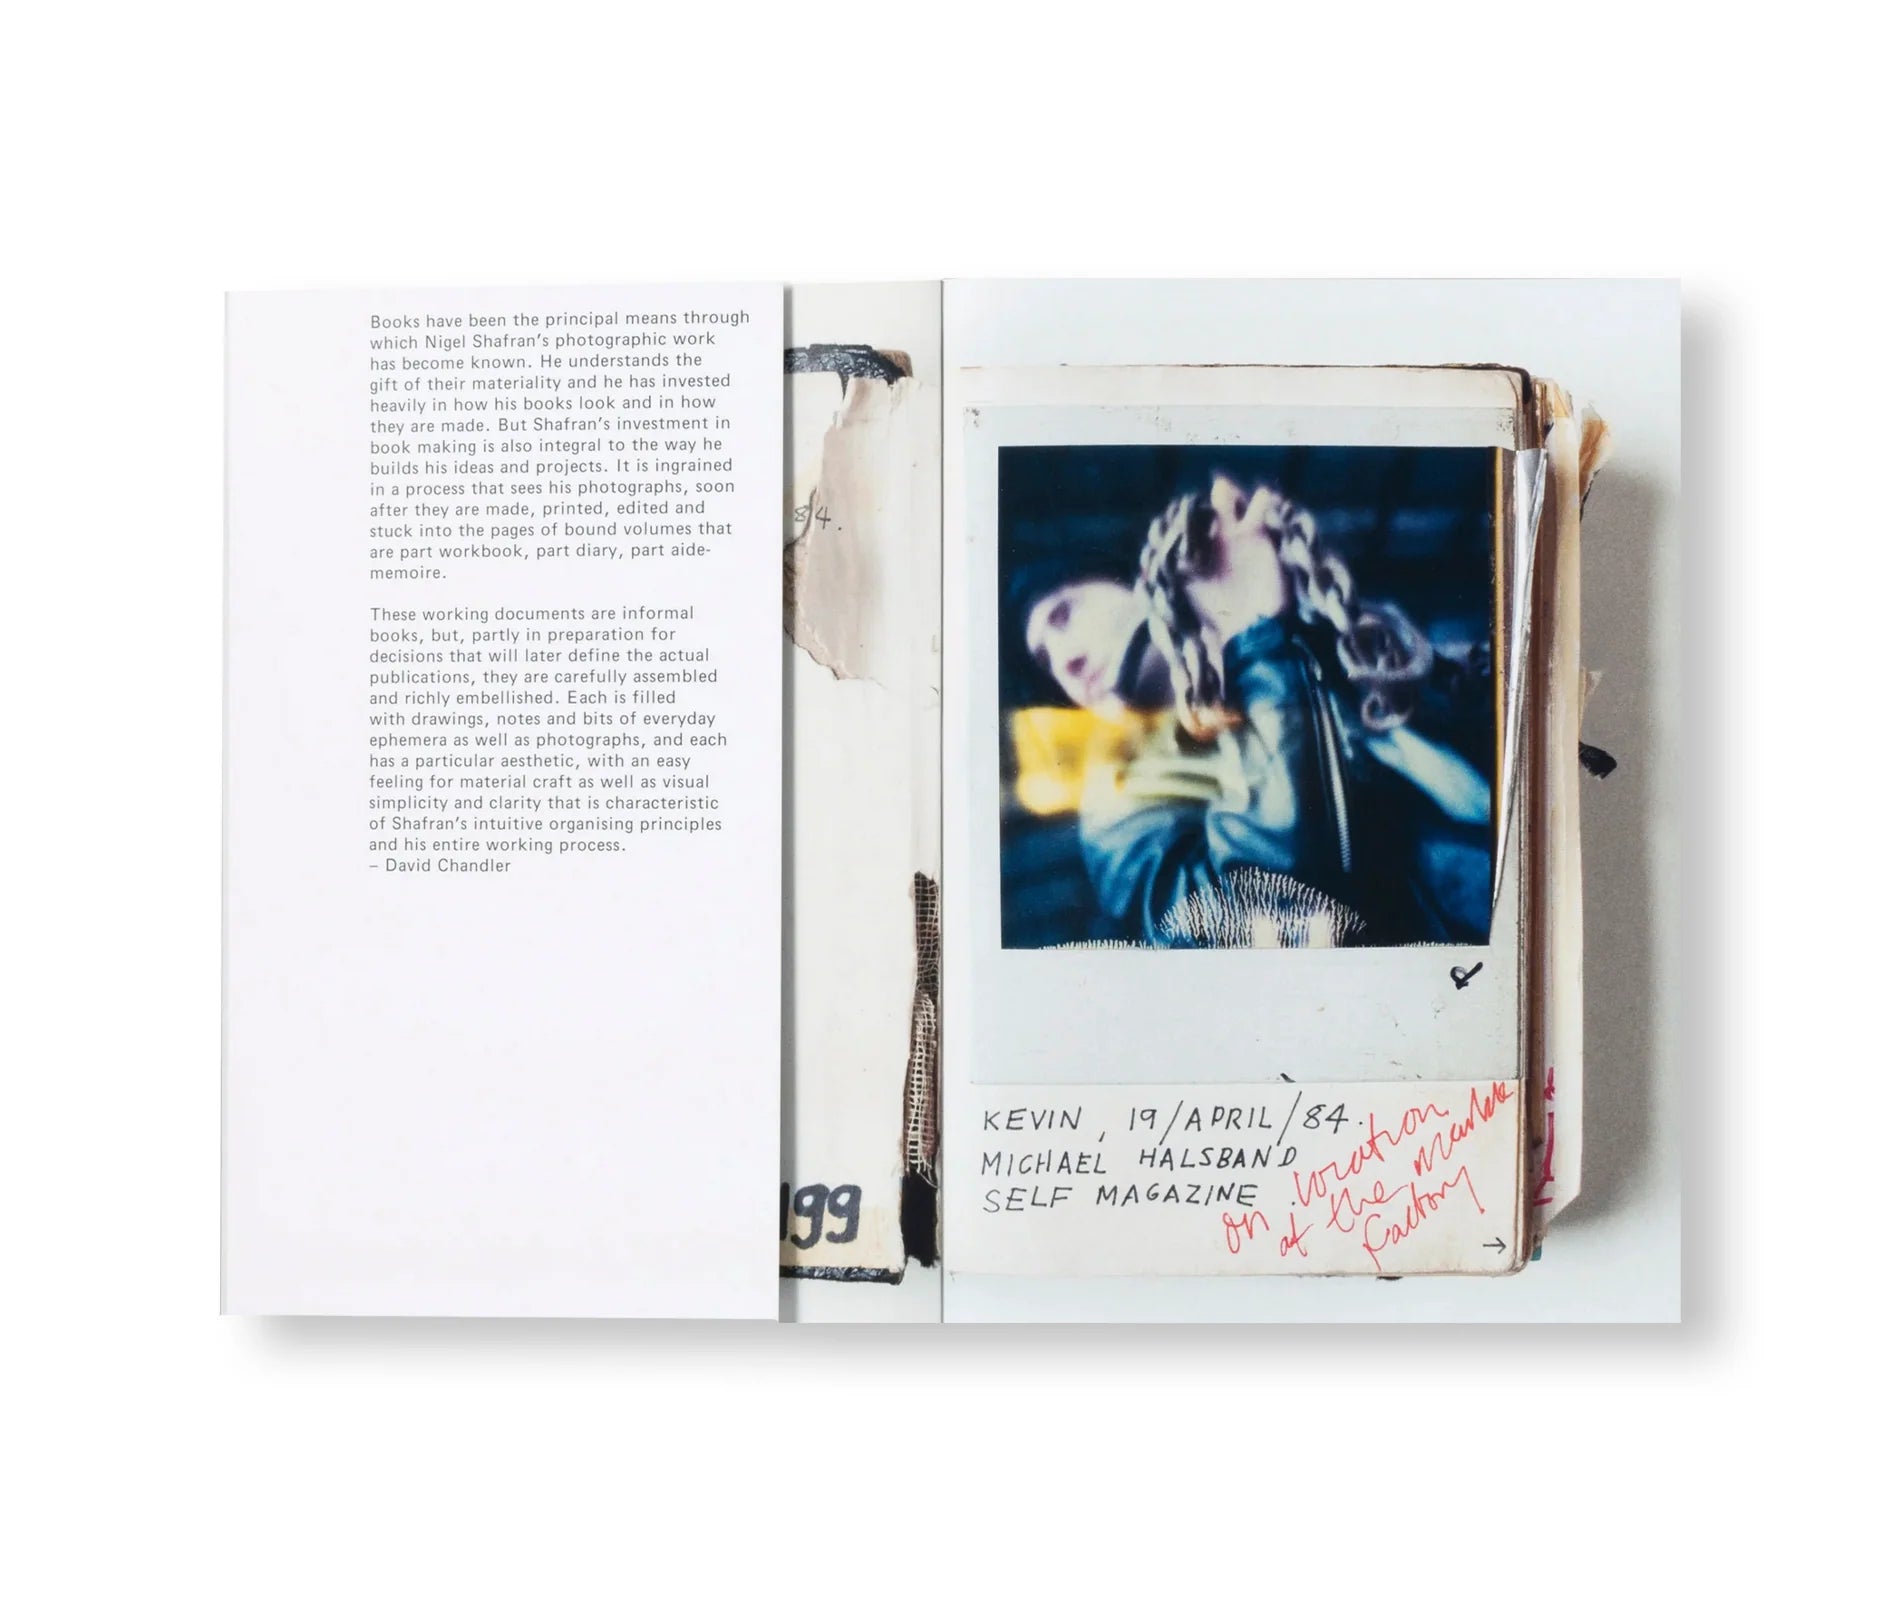 Books have been the principal means through
which Nigel Shafran’s photographic work
has become known. He understands the
gift of their materiality and he has invested
heavily in how his books look and in how
they are made. But Shafran’s investment in
book making is also integral to the way he
builds his ideas and projects. It is ingrained
in a process that sees his photographs, soon
after they are made, printed, edited and
stuck into the pages of bound volumes that
are part workbook, part diary, part aide-
memoire.
These working documents are informal
books, but, partly in preparation for
decisions that will later define the actual
publications, they are carefully assembled
and richly embellished. Each is filled
with drawings, notes and bits of everyday
ephemera as well as photographs, and each
has a particular aesthetic, with an easy
feeling for material craft as well as visual
simplicity and clarity that is characteristic
of Shafran’s intuitive organising principles
and his entire working process.
– David Chandler
84.
99
KEVIN, 19/APRIL/84.
MICHAEL HALSBAND
SELF MAGAZINE.
on location
at the
Factory
→